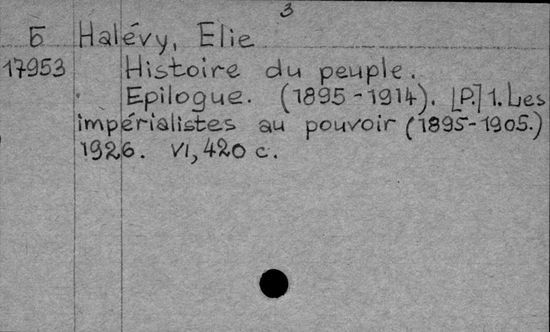 3
Б Halévy, Elie
17953 Histoire du peuple.
Epilogue. (1895-1914). [P.] 1. Les
impérialistes au pouvoir (1895-1905.)
1926. VI, 420 c.